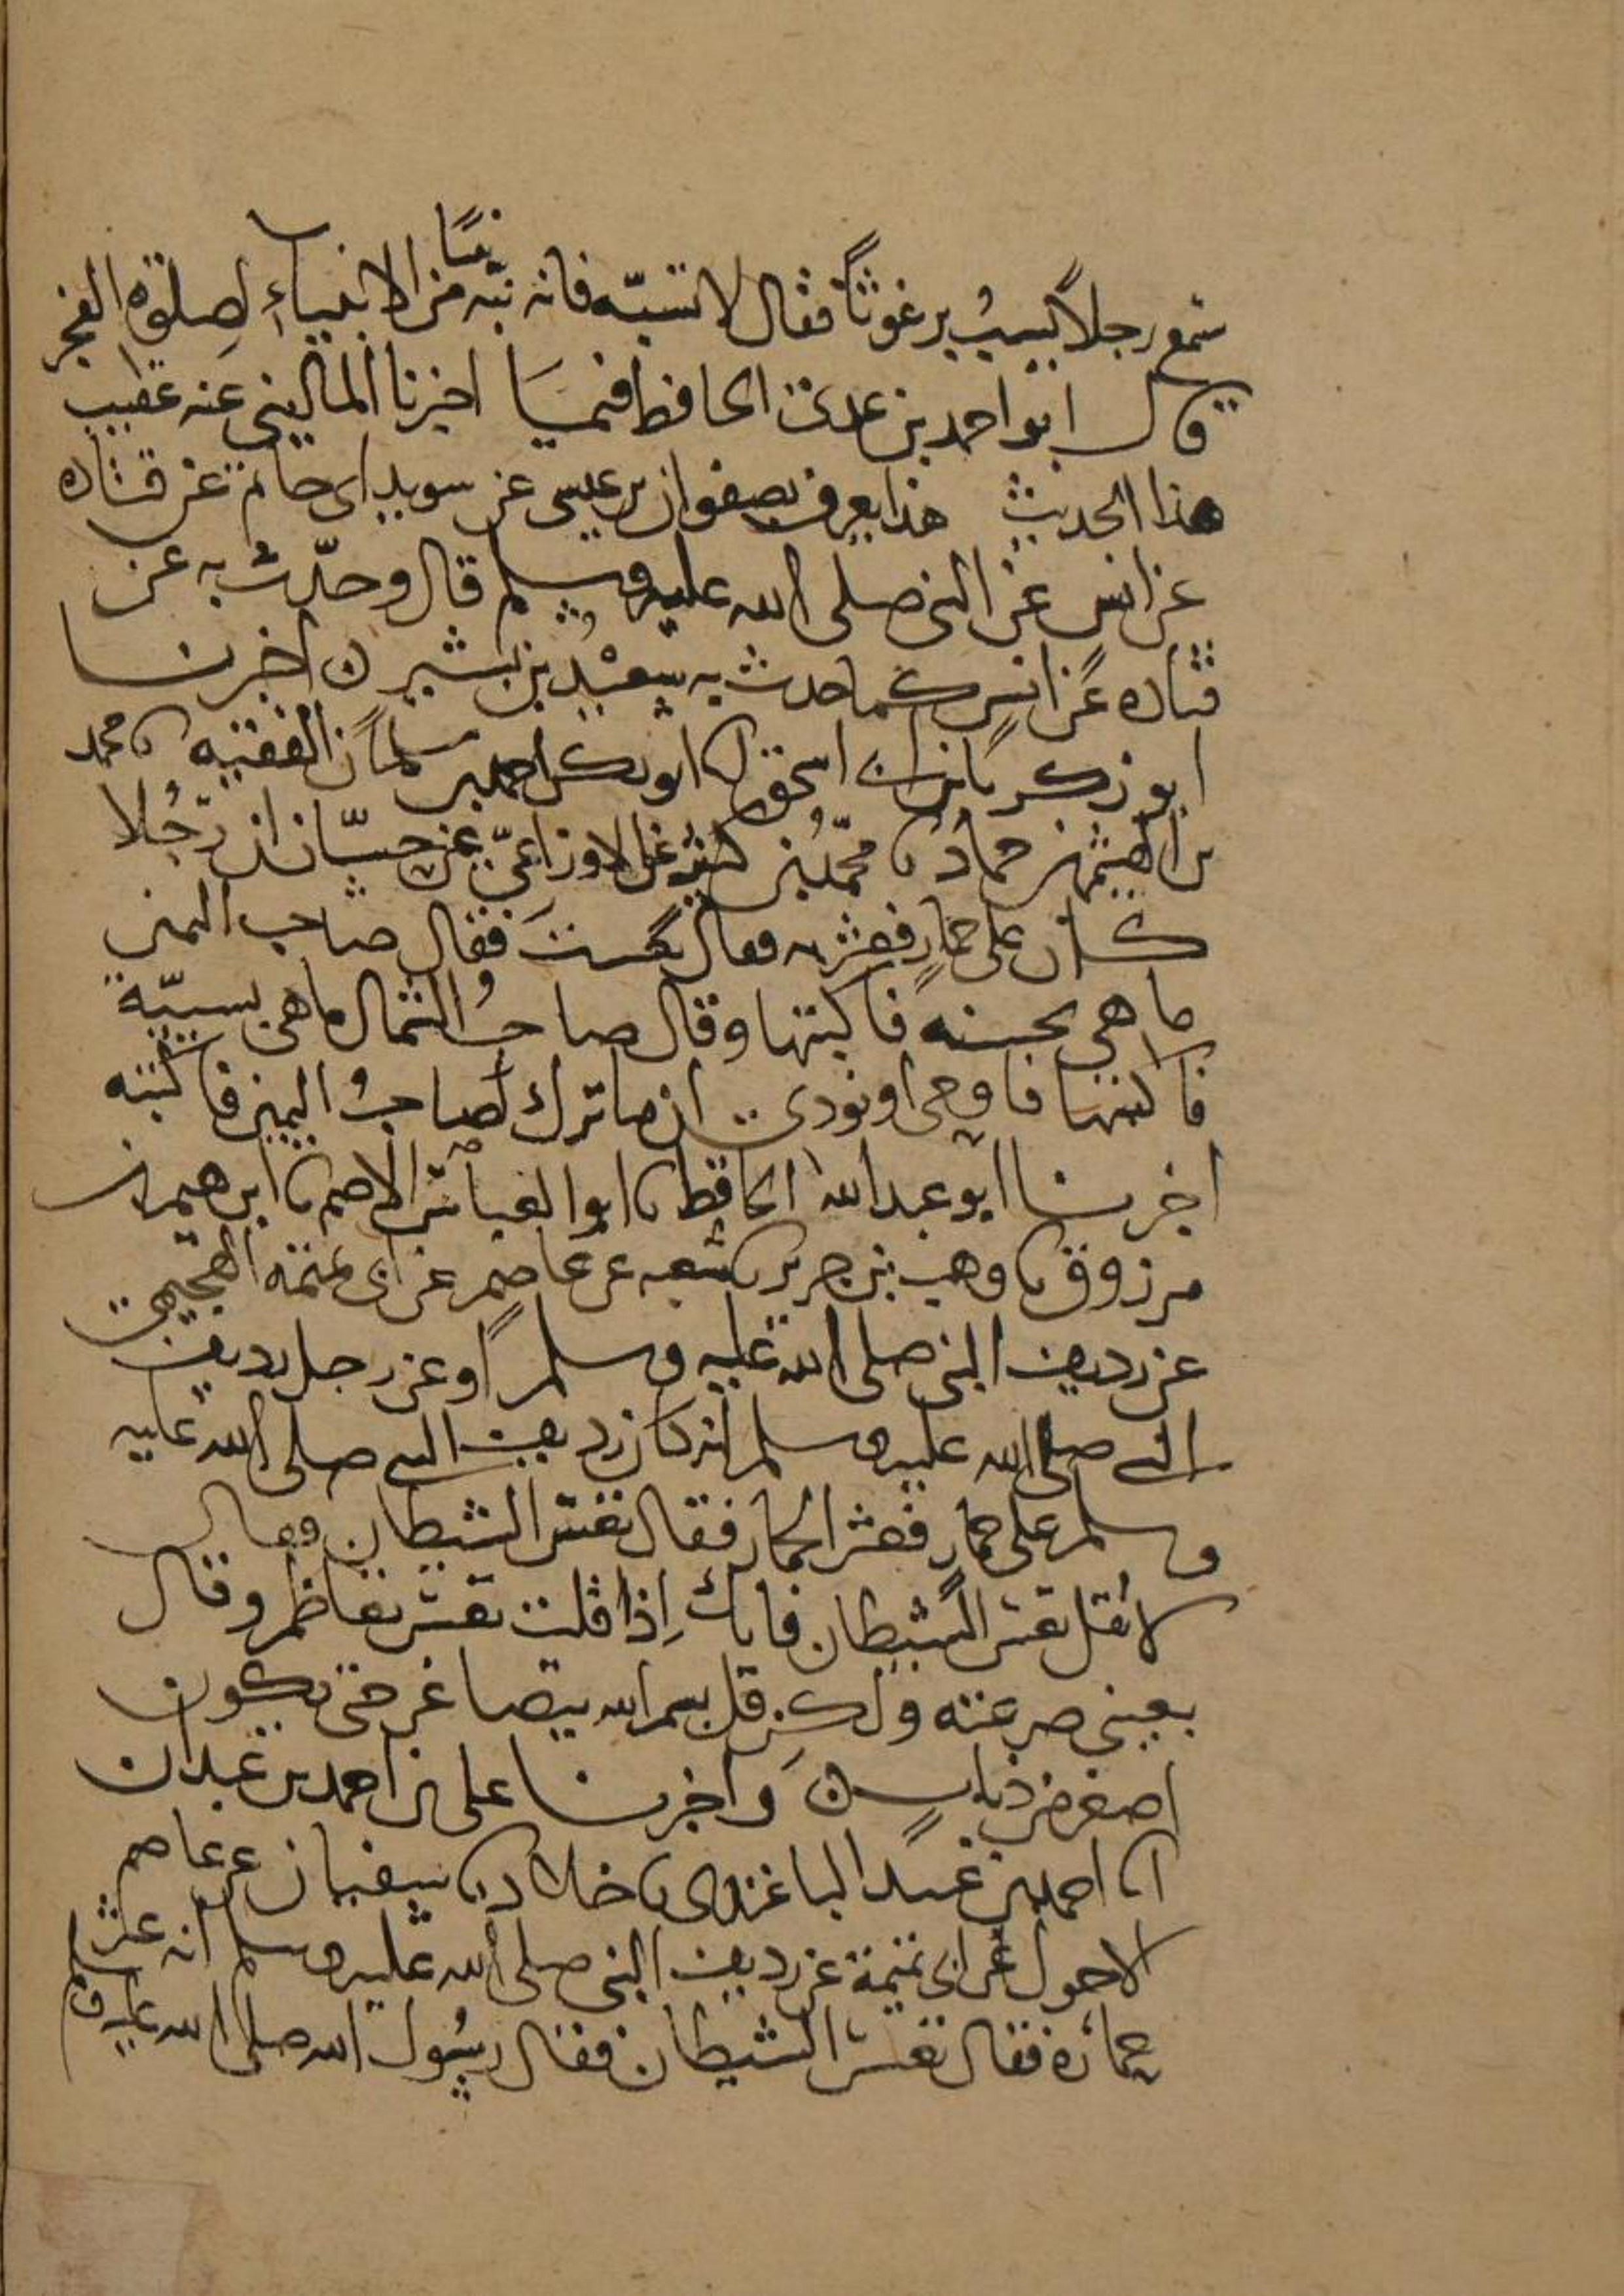 نبيًا
سمع رجلا يسب برغوثا فقال لا تسبه فانه نبه من الانبياء لصلوة الفجر
قال ابو احمد بن عدي الحافظ فيما اخبرنا الماليني عنه عقيب
هذا الحديث هذا يعرف بصفوان بن عيسى عن سويد ابى حاتم عن قتاده
عن انس عن النبي صلى الله عليه وسلم قال وحدث به عن
قتاده عن انس كما حدث به سعيد بن بشير ن اخبرنا
ابو زكريا بن ابى اسحق انا ابو بكر احمد بن سلمان الفقيه نا محمد
بن الهيثم بن حماد نا محمد بن كثير عن الاوزاعي عن حسان ان رجلا
كان على حمار فعثر به فقال تعست فقال صاحب اليمين
ما هي بحسنه فاكتبها وقال صاحب الشمال ما هي بسيئة
فاكتبها فاوحى او نودي ان ما ترك صاحب اليمين فاكتبه
اخبرنا ابو عبد الله الحافظ نا ابو العباس الاصم نا ابرهيم بن
مرزوق نا وهب بن جرير نا شعبه عن عاصم عن ابى تميمه الهجيمي
عن رديف النبي صلى الله عليه وسلم او عن رجل رديف
النبي صلى الله عليه وسلم انه كان رديف النبي صلى الله عليه
وسلم على حمار فعثر الحمار فقال تعس الشيطان فقال
لا تقل تعس الشيطان فانك اذا قلت تعس تعاظم وقال
يعني صرعته ولكن قل بسم الله يتصاغر حتى يكون
اصغر من ذباب ن واخبرنا على بن احمد بن عبدان
انا احمد بن عبيد نا الباغندى نا خلاد نا سفيان عن عاصم
الاحول عن ابى تميمة عن رديف النبي صلى الله عليه وسلم انه عثر
حماره فقال تعس الشيطان فقال رسول الله صلى الله عليه وسلم